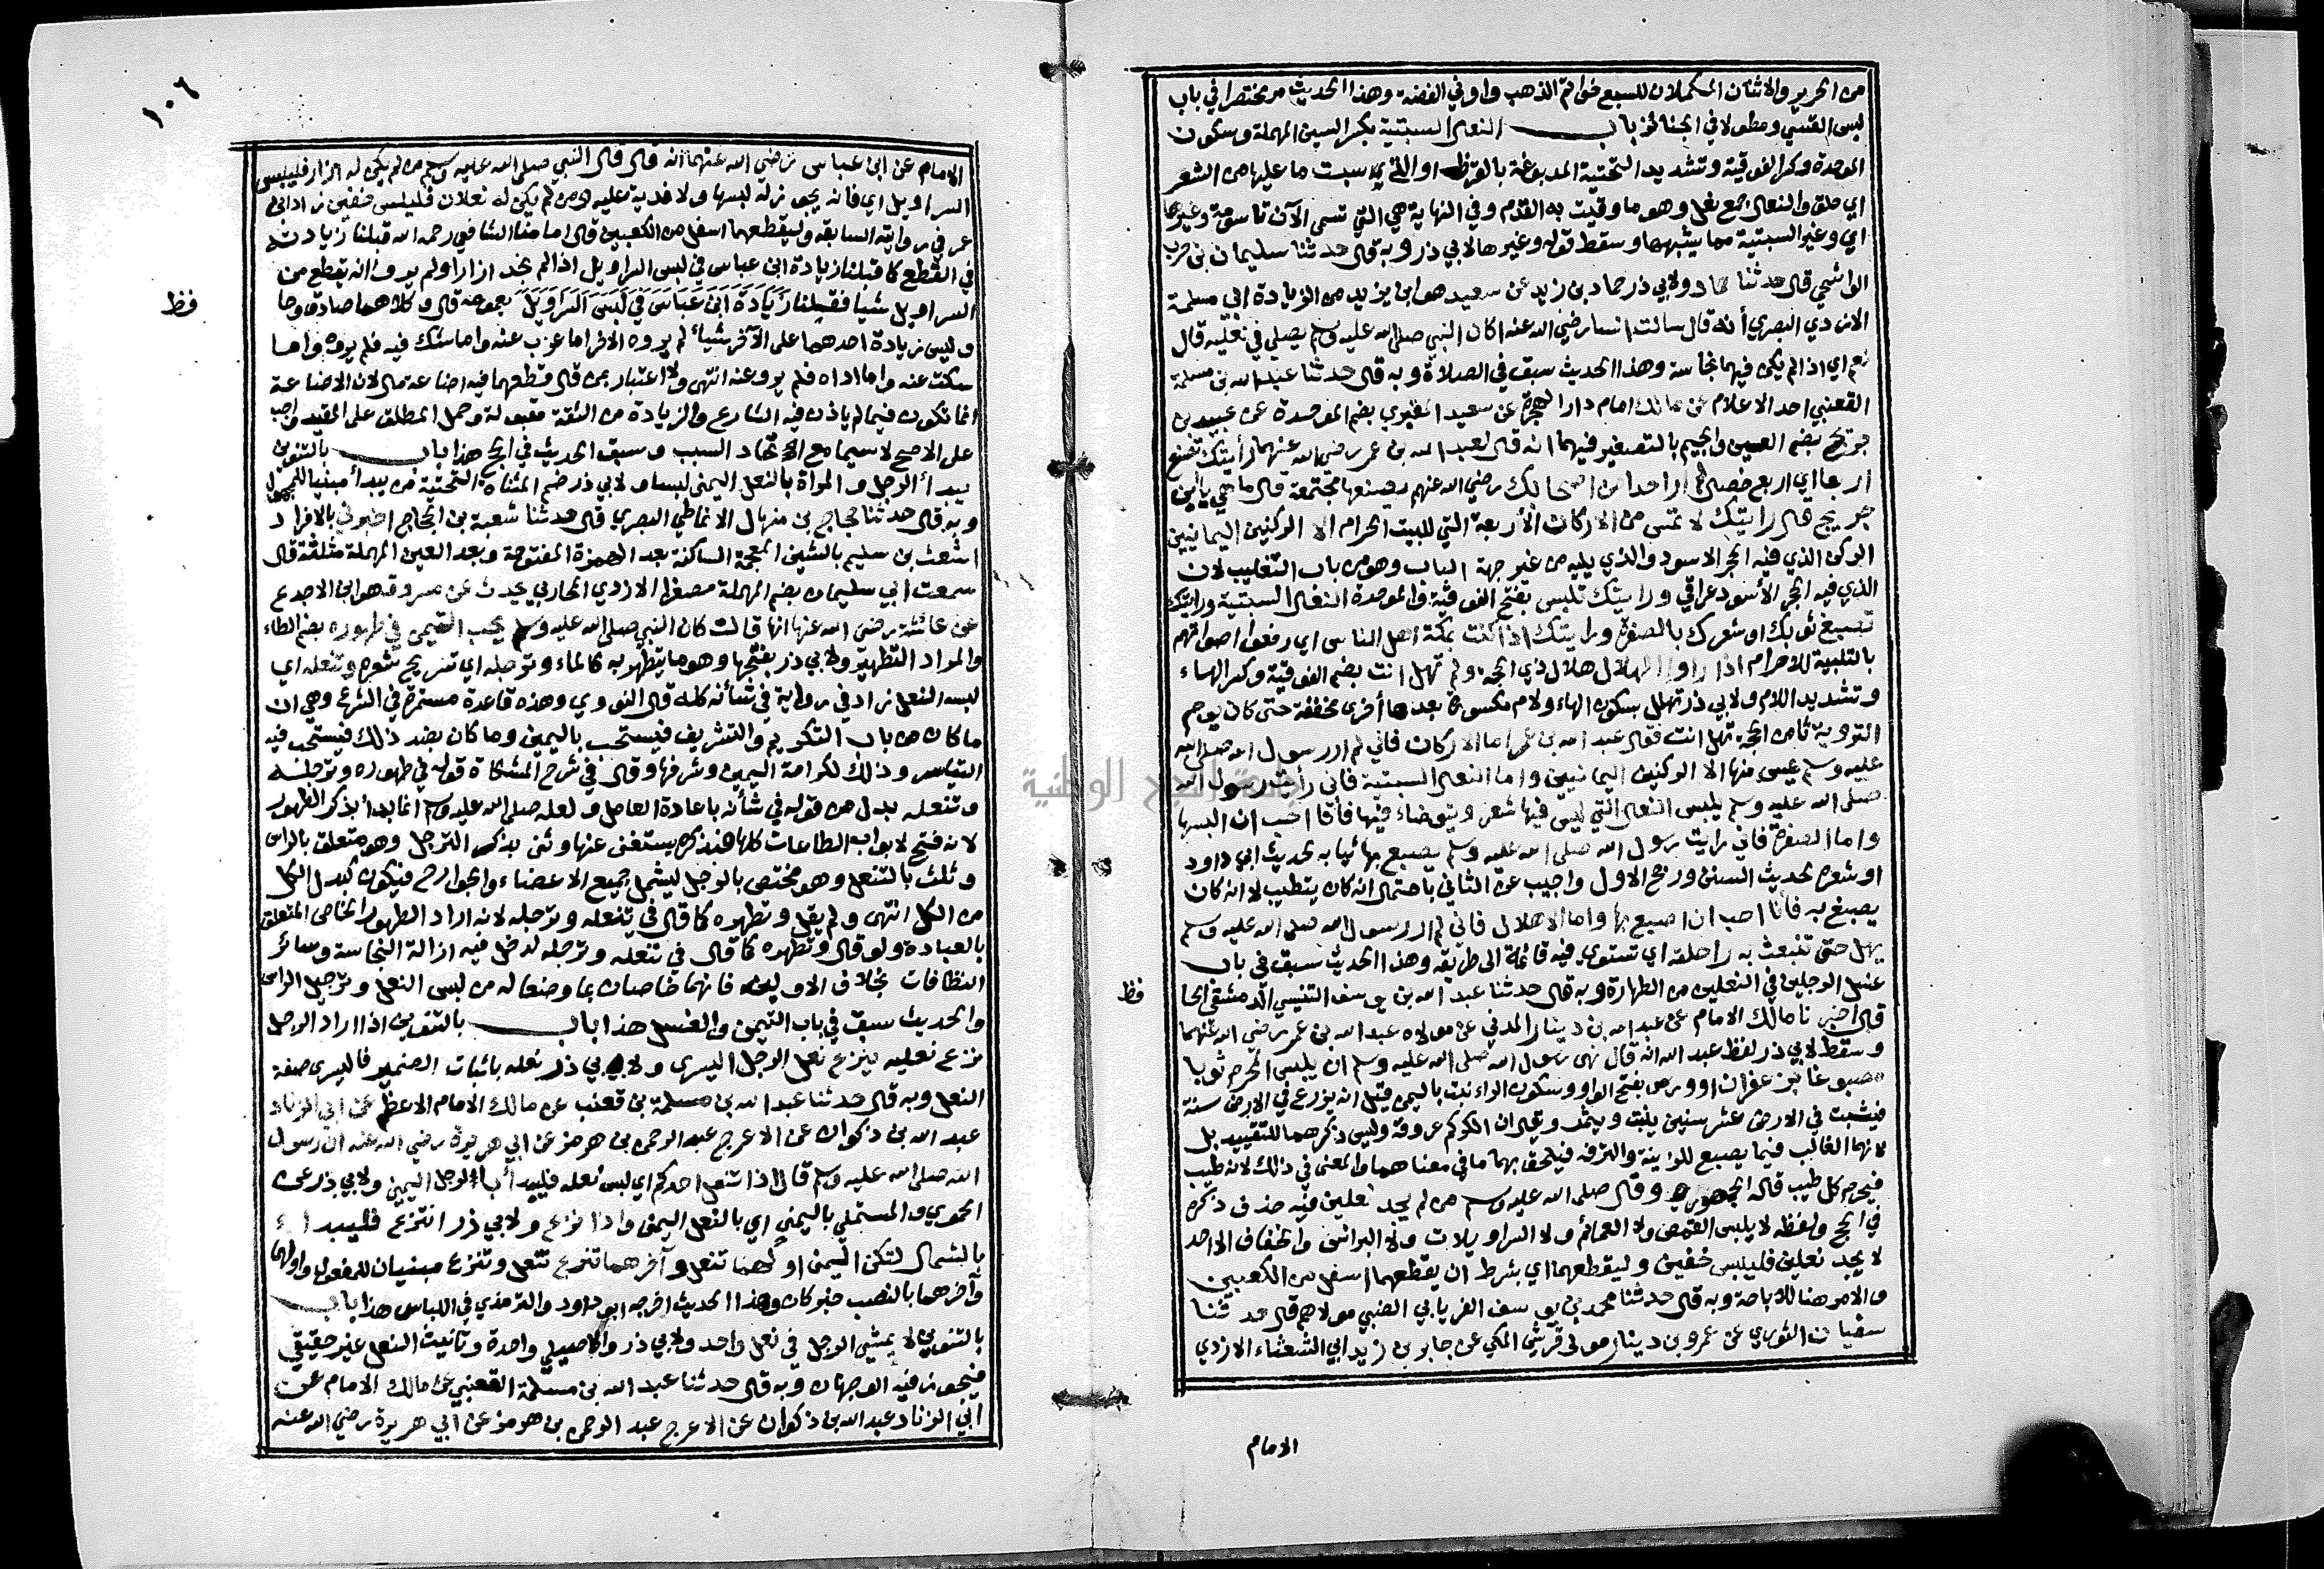 من الحرير والاثنان المكملان للسبع خواتم الذهب واواني الفضة وهذا الحديث مر مختصرا في باب
لبس القسي ومطولا في الجنائز باب النعال السبتية بكسر السين المهملة وسكون
الموحدة وكسر الفوقية وتشديد التحتية المدبوغة بالقرظ او التي سبت ما عليها من الشعر
اي حلق والنعال جمع نعل وهو ما وقيت به القدم وفي النهاية هي التي تسمى الآن تاسومة وغيرها
اي وغير السبتية مما يشبهها وسقط قوله وغيرها لابي ذر وبه قال حدثنا سليمان بن حرب
الواشحي قال حدثنا حماد ولابي ذر حماد بن زيد عن سعيد هو ابن يزيد من الزيادة ابي مسلمة
الازدي البصري أنه قال سالت انسا رضي الله عنه اكان النبي صلى الله عليه وسلم يصلي في نعليه قال
نعم اي اذا لم يكن فيهما نجاسة وهذا الحديث سبق في الصلاة وبه قال حدثنا عبد الله بن مسلمة
القعنبي احد الاعلام عن مالك امام دار الهجرة عن سعيد المقبري بضم الموحدة عن عبيد بن
جريج بضم العين والجيم بالتصغير فيهما انه قال لعبد الله بن عمر رضي الله عنهما رأيتك تصنع
اربعا اي اربع خصال لم ار احدا من اصحابك رضي الله عنهم يصنعها مجتمعة قال ما هي يا ابن
جريج قال رايتك لا تمس من الاركان الأربعة التي للبيت الحرام الا الركنين اليمانيين
الركن الذي فيه الحجر الاسود والذي يليه من غير جهة الباب وهو من باب التغليب لان
الذي فيه الحجر الأسود عراقي ورايتك تلبس بفتح الفوقية والموحدة النعال السبتية ورايتك
تصبغ ثوبك او شعرك بالصفرة ورايتك اذا كنت بمكة اهل الناس اي رفعوا اصواتهم
بالتلبية للاحرام اذا راوا الهلال هلال ذي الحجة ولم تهل انت بضم الفوقية وكسر الهاء
وتشديد اللام ولابي ذر تهلل بسكون الهاء ولام مكسورة بعدها أخرى مخففة حتى كان يوم
التروية ثامن الحجة تهل انت فقال عبد الله بن عمر اما الاركان فاني لم ار رسول الله صلى الله
عليه وسلم يمس منها الا الركنين اليمانيين واما النعال السبتية فاني رأيت رسول الله
صلى الله عليه وسلم يلبس النعال التي ليس فيها شعر ويتوضاء فيها فأنا احب ان البسها
واما الصفرة فاني رايت رسول الله صلى الله عليه وسلم يصبغ بها ثيابه لحديث ابي داود
او شعره لحديث السنن ورجح الاول واجيب عن الثاني باحتمال انه كان يتطيب لا انه كان
يصبغ به فانا احب ان اصبغ بها واما الاهلال فاني لم ار رسول الله صلى الله عليه وسلم
يهل حتى تنبعث به راحلته اي تستوي فيه قائمة الى طريقه وهذا الحديث سبق في باب
غسل الرجلين في النعلين من الطهارة وبه قال حدثنا عبد الله بن يوسف التنيسي الدمشقي
قال اخبرنا مالك الامام عن عبد الله بن دينار المدني عن مولاه عبد الله بن عمر رضي الله عنهما
وسقط لابي ذر لفظ عبد الله انه قال نهى رسول الله صلى الله عليه وسلم ان يلبس المحرم ثوبا
مصبوغا بزعفران او ورس بفتح الواو وسكون الراء نبت باليمن قيل انه يزرع في الارض سنة
فيثبت في الارض عشر سنين ينبت ويثمر وقيل ان الكركم عروقه وليس ذكرهما للتقييد بل
لانهما الغالب فيما يصبغ للزينة والترفه فيلحق بهما ما في معناهما والمعنى في ذلك لانه طيب
فيحرم كل طيب قاله الجمهور وقال صلى الله عليه وسلم من لم يجد نعلين فيه حذف ذكره
في الحج ولفظه لا يلبس القمص ولا العمائم ولا السراويلات ولا البرانس والخفاف الا احد
لا يجد نعلين فليلبس خفين وليقطعهما اي بشرط ان يقطعهما اسفل من الكعبين
والامر هنا للاباحة وبه قال حدثنا محمد بن يوسف الفريابي الضبي مولاهم قال حدثنا
سفيان الثوري عن عمرو بن دينار مولى قريش المكي عن جابر بن زيد ابي الشعثاء الازدي
الامام
فظ
١٠٦
الامام عن ابن عباس رضي الله عنهما انه قال قال النبي صلى الله عليه وسلم من لم يكن له ازار فليلبس
السراويل اي فانه يجوز له لبسها ولا فدية عليه ومن لم يكن له نعلان فليلبس خفين زاد ابن
عمر في روايته السابقه وليقطعهما اسفل من الكعبين قال امامنا الشافعي رحمه الله قبلنا زيادته
في القطع كما قبلنا زيادة ابن عباس في لبس السراويل اذا لم يجد ازارا ولم يرو انه يقطع من
السراويل شيا فقبلنا زيادة ابن عباس في لبس السراويل بعمومه قال وكلاهما صادق وحا
وليس زيادة احدهما على الآخر شيأ لم يروه الاخر اما عزب عنه واما شك فيه فلم يروه واما
سكت عنه واما اداه فلم يرو عنه انتهى ولا اعتبار بمن قال قطعهما فيه اضاعة مال لان الاضاعة
انما تكون فيما لم ياذن فيه الشارع والزيادة من الثقة مقبولة وحمل المطلق على المقيد واجب
على الاصح لا سيما مع اتحاد السبب وسبق الحديث في الحج هذا باب بالتنوين
يبدأ الرجل والمراة بالنعل اليمنى لبسا ولابي ذر ضم المثناة التحتية من يبدأ مبنيا للمجهول
وبه قال حدثنا حجاج بن منهال الانماطي البصري قال حدثنا شعبة بن الحجاج اخبرني بالافراد
اشعث بن سليم بالشين المعجمة الساكنة بعد الهمزة المفتوحة وبعد العين المهملة مثلثة قال
سمعت ابي سليم بضم المهملة مصغرا الازدي المحاربي يحدث عن مسروق هو ابن الاجدع
عن عائشة رضي الله عنها انها قالت كان النبي صلى الله عليه وسلم يحب التيمن في طهوره بضم الطاء
والمراد التطهير ولابي ذر بفتحها وهو ما يتطهر به كالماء وترجله اي تسريح شعره وتنعله اي
لبسه النعل زاد في رواية في شأنه كله قال النووي وهذه قاعدة مستمرة في الشرع وهي ان
ما كان من باب التكريم والتشريف فيستحب باليمين وما كان بضد ذلك فيستحب فيه
التياسر وذلك لكرامة اليمين وشرفها وقال في شرح المشكاة قوله في طهوره وترجله
وتنعله بدل من قوله في شأنه باعادة العامل ولعله صلى الله عليه وسلم انما بدأ بذكر الطهور
لانه فتح لابواب الطاعات كلها فبذكره يستغنى عنها وثنى بذكر الترجل وهو متعلق بالراس
وثلث بالتنعل وهو مختص بالرجل ليشمل جميع الاعضاء والجوارح فيكون كبدل الكل
من الكل انتهى ولم يقل وتطهره كما قال في تنعله وترجله لانه اراد الطهور الخاص المتعلق
بالعبادة ولو قال وتطهره كما قال في تنعله وترجله لدخل فيه ازالة النجاسة وسائر
النظافات بخلاف الاوليين فانهما خاصان بما وضعا له من لبس النعل وترجيل الراس
والحديث سبق في باب التيمن والغسل هذا باب بالتنوين اذا اراد الرجل
نزع نعليه ينزع نعل الرجل اليسرى ولابي ذر نعله باثبات الضمير فاليسرى صفة
النعل وبه قال حدثنا عبد الله بن مسلمة بن قعنب عن مالك الامام الاعظم عن ابي الزناد
عبد الله بن ذكوان عن الاعرج عبد الرحمن بن هرمز عن ابي هريرة رضي الله عنه ان رسول
الله صلى الله عليه وسلم قال اذا انتعل احدكم اي لبس نعله فليبدأ بالرجل اليمين ولابي ذر عن
الحموي والمستملي باليمنى اي بالنعل اليمنى واذا نزع ولابي ذر انتزع فليبدا
بالشمال لتكن اليمنى اولهما تنعل وآخرهما تنزع تنعل وتنزع مبنيان للمفعول واولهما
وآخرهما بالنصب خبر كان وهذا الحديث اخرجه ابو داود والترمذي في اللباس هذا باب
بالتنوين لا يمشي الرجل في نعل واحد ولابي ذر والاصيلي واحدة وتانيث النعل غير حقيقي
فيجوز فيه الوجهان وبه قال حدثنا عبد الله بن مسلمة القعنبي عن مالك الامام عن
ابي الزناد عبد الله بن ذكوان عن الاعرج عبد الرحمن بن هرمز عن ابي هريرة رضي الله عنه
فظ
جامعة النجاح الوطنية